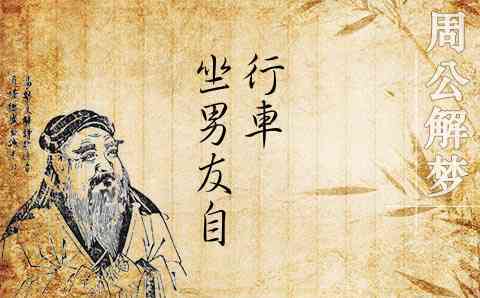 周公解梦
坐男友自
行車